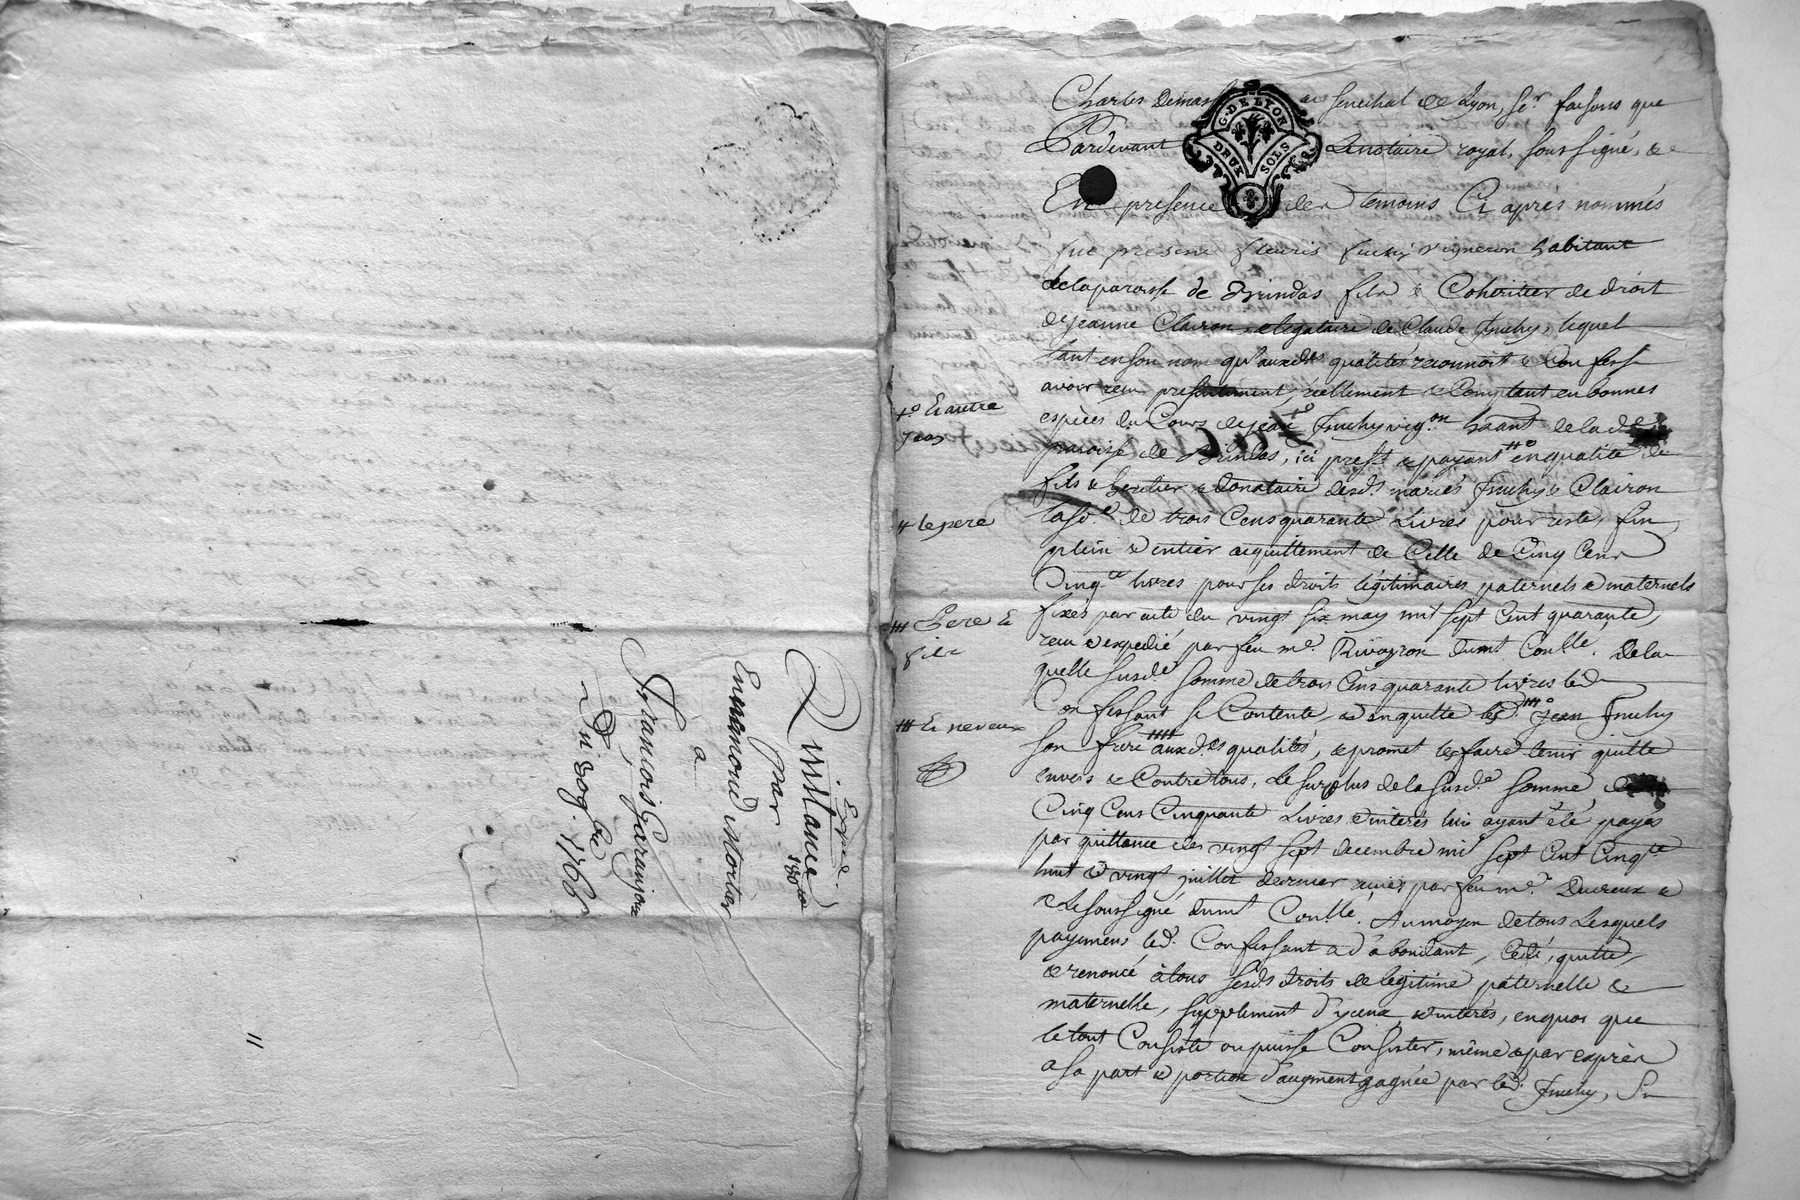 Expéd.
Quittance
par
Ennemond Mortier
a
François Garanjoux
Du 30 9bre 1766
11
Charles Demas senechal de Lyon, sçr. faisons que
Pardevant Le notaire royal, soussigné, &
En présence des temoins Cy après nommés
fut present fleuris fuchy vigneron habitant
de la paroisse de Brindas fils & Coheritier de droit
de jeanne Clairon & legataire de Claude fuchy, lequel
tant en son nom qu'auxd.es qualités reconnoit & Confesse
avoir reçu presentement, réellement & Comptant en bonnes
espèces du Cours de jean fuchy vig.on h.ant de lad.
paroisse de Brindas, ici pres.t & payant en qualité de
fils & heritier & donataire desd.s mariés fuchy & Clairon
la so.e de trois Cens quarante Livres pour reste, fin,
plein & entier acquittement de Celle de Cinq Cens
Cinq.te livres pour ses droits légitimaires paternels & maternels
fixés par acte du vingt six may mil sept Cent quarante,
reçu & expedié par feu m.e Rivoyron dumt. Conllé. De la
quelle susd.e somme de trois Cens quarante livres led.
Confessant se Contente, & en quitte led. Jean fuchy
son frere auxd.es qualités, & promet le faire tenir quitte
envers & Contre tous, Le surplus de la susd.e somme de
Cinq Cens Cinquante Livres & interes lui ayant été payés
par quittance des vingt sept decembre mil sept Cent Cinq.te
huit & vingt juillet dernier reçues par feu m.e Ducreux &
& Le soussigné dumt. Conllé. Au moyen de tous Lesquels
payemens led. Confessant a d'abondant, Cedé, quitté,
& renoncé à tous sesd.s droits de legitime paternelle &
maternelle, supplement d'ycena & interés, en quoi que
le tout Consiste ou puisse Consister, même & par exprès
a sa part & portion d'augment gagnée par led. fuchy, Sn
+o Et autre
Jean
# le pere
### Pere &
fils
### Et neveux